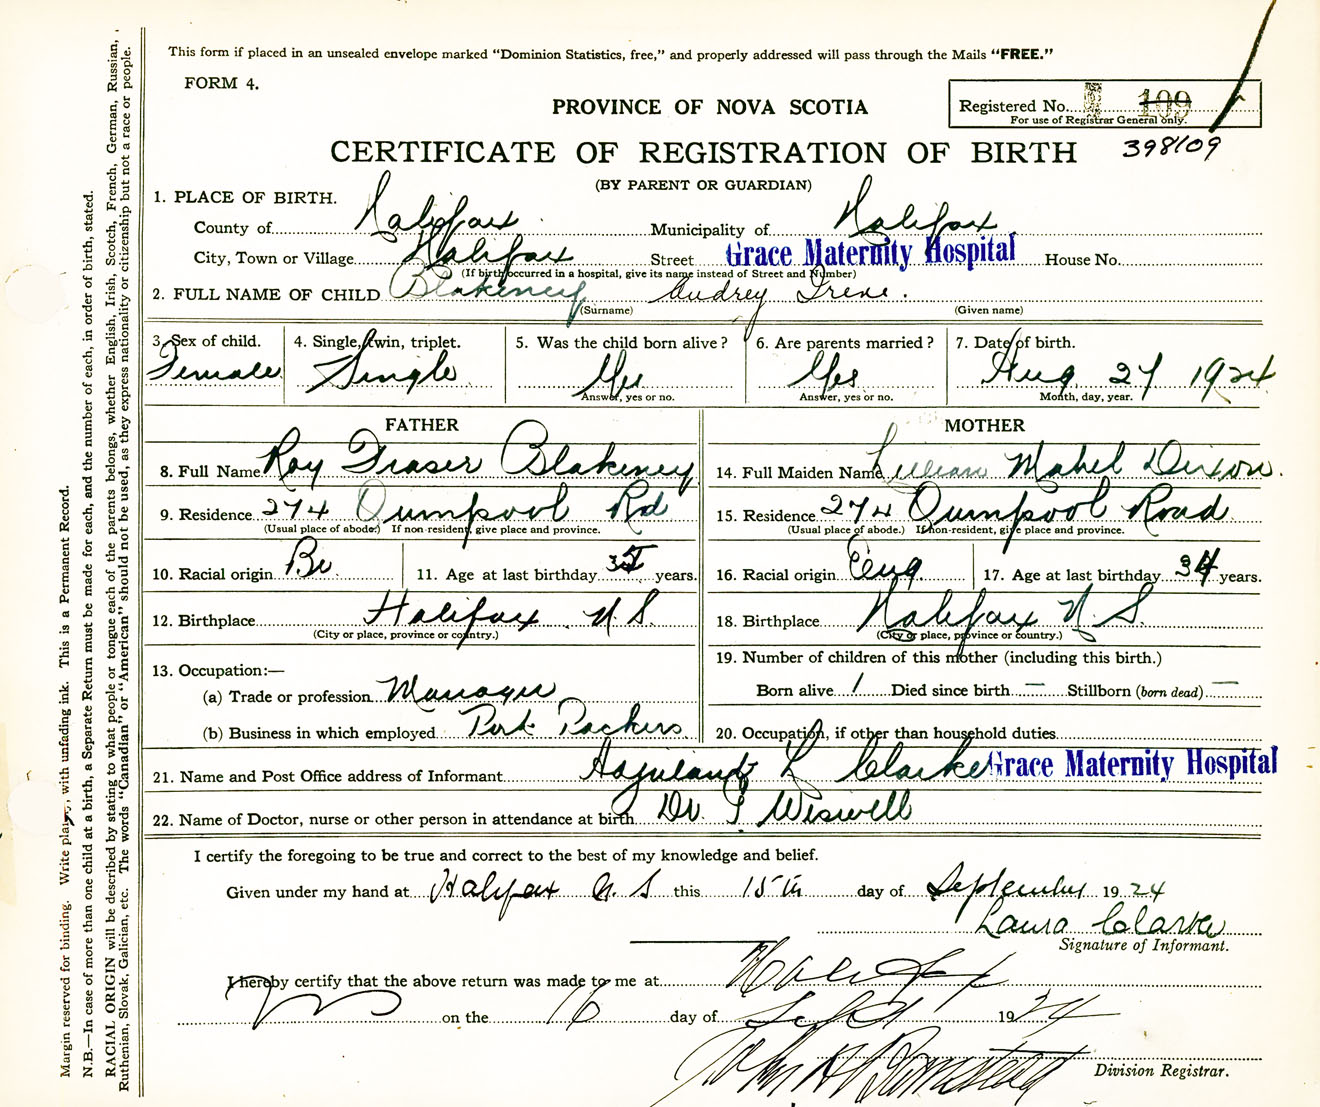 This form if placed in an unsealed envelope marked "Dominion Statistics, free," and properly addressed will pass through the Mails "FREE."
FORM 4.
PROVINCE OF NOVA SCOTIA
Registered No. 109
For use of Registrar General only.
CERTIFICATE OF REGISTRATION OF BIRTH 398109
(BY PARENT OR GUARDIAN)
1. PLACE OF BIRTH.
County of Halifax Municipality of Halifax
City, Town or Village Halifax Street Grace Maternity Hospital House No.
(If birth occurred in a hospital, give its name instead of Street and Number)
2. FULL NAME OF CHILD Blakeney Audrey Irene.
(Surname) (Given name)
3. Sex of child. 4. Single, twin, triplet. 5. Was the child born alive? 6. Are parents married? 7. Date of birth.
Female Single Yes Yes Aug 27 1924
Answer, yes or no. Answer, yes or no. Month, day, year.
FATHER MOTHER
8. Full Name Roy Fraser Blakeney 14. Full Maiden Name Lillian Mabel Dixon.
9. Residence 274 Quinpool Rd 15. Residence 274 Quinpool Road
(Usual place of abode.) If non-resident, give place and province. (Usual place of abode.) If non-resident, give place and province.
10. Racial origin 11. Age at last birthday 35 years. 16. Racial origin Eng 17. Age at last birthday 34 years.
12. Birthplace Halifax N.S. 18. Birthplace Halifax N.S.
(City or place, province or country.) (City or place, province or country.)
13. Occupation:— 19. Number of children of this mother (including this birth.)
(a) Trade or profession Manager Born alive 1 Died since birth — Stillborn (born dead) —
(b) Business in which employed Packers 20. Occupation, if other than household duties
21. Name and Post Office address of Informant L Clarke Grace Maternity Hospital
22. Name of Doctor, nurse or other person in attendance at birth Dr. Wiswell
I certify the foregoing to be true and correct to the best of my knowledge and belief.
Given under my hand at Halifax N S this 15th day of September 1924
Laura Clarke
Signature of Informant.
I hereby certify that the above return was made to me at Halifax
on the 16 day of Sept 1924
John
Division Registrar.
Margin reserved for binding. Write plainly, with unfading ink. This is a Permanent Record.
N.B.—In case of more than one child at a birth, a Separate Return must be made for each, and the number of each, in order of birth, stated.
RACIAL ORIGIN will be described by stating to what people or tongue each of the parents belongs, whether English, Irish, Scotch, French, German, Russian,
Ruthenian, Slovak, Galician, etc. The words "Canadian" or "American" should not be used, as they express nationality or citizenship but not a race or people.